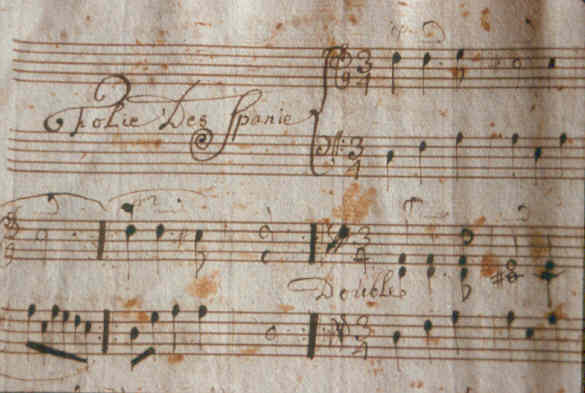 Folie Des Spanie
3
4
3
4
3
4
Double
3
4